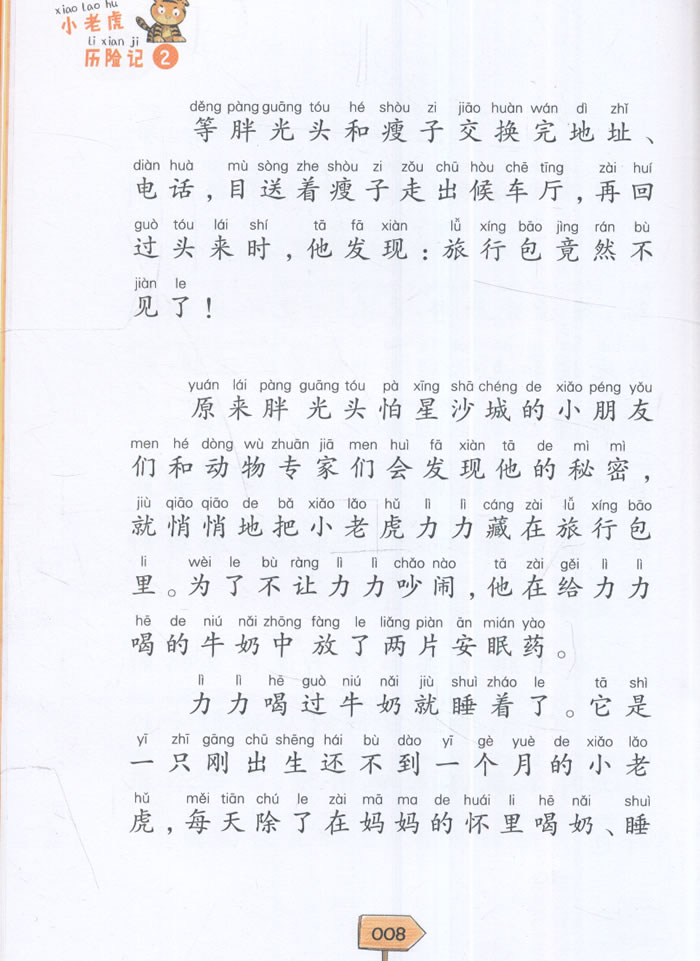 xiao lao hu
小老虎
li xian ji
历险记 2
děng pàng guāng tóu hé shòu zi jiāo huàn wán dì zhǐ
等胖光头和瘦子交换完地址、
diàn huà mù sòng zhe shòu zi zǒu chū hòu chē tīng zài huí
电话，目送着瘦子走出候车厅，再回
guò tóu lái shí tā fā xiàn lǚ xíng bāo jìng rán bù
过头来时，他发现：旅行包竟然不
jiàn le
见了！
yuán lái pàng guāng tóu pà xīng shā chéng de xiǎo péng yǒu
原来胖光头怕星沙城的小朋友
men hé dòng wù zhuān jiā men huì fā xiàn tā de mì mì
们和动物专家们会发现他的秘密，
jiù qiāo qiāo de bǎ xiǎo lǎo hǔ lì lì cáng zài lǚ xíng bāo
就悄悄地把小老虎力力藏在旅行包
li wèi le bù ràng lì lì chǎo nào tā zài gěi lì lì
里。为了不让力力吵闹，他在给力力
hē de niú nǎi zhōng fàng le liǎng piàn ān mián yào
喝的牛奶中放了两片安眠药。
lì lì hē guò niú nǎi jiù shuì zháo le tā shì
力力喝过牛奶就睡着了。它是
yī zhī gāng chū shēng hái bù dào yī gè yuè de xiǎo lǎo
一只刚出生还不到一个月的小老
hǔ měi tiān chú le zài mā ma de huái li hē nǎi shuì
虎，每天除了在妈妈的怀里喝奶、睡
008